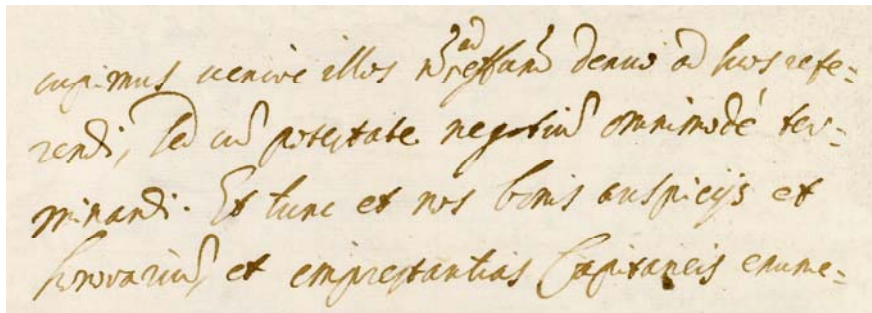 cupimus venire illos nõ ad denuo ad suos refe:
rendi, sed cũ potestate negotiũ omnimodé ter:
minandi. Et tunc et nos bonis auspicijs et
honorariũ, et emprestantias Capitaneis enume: